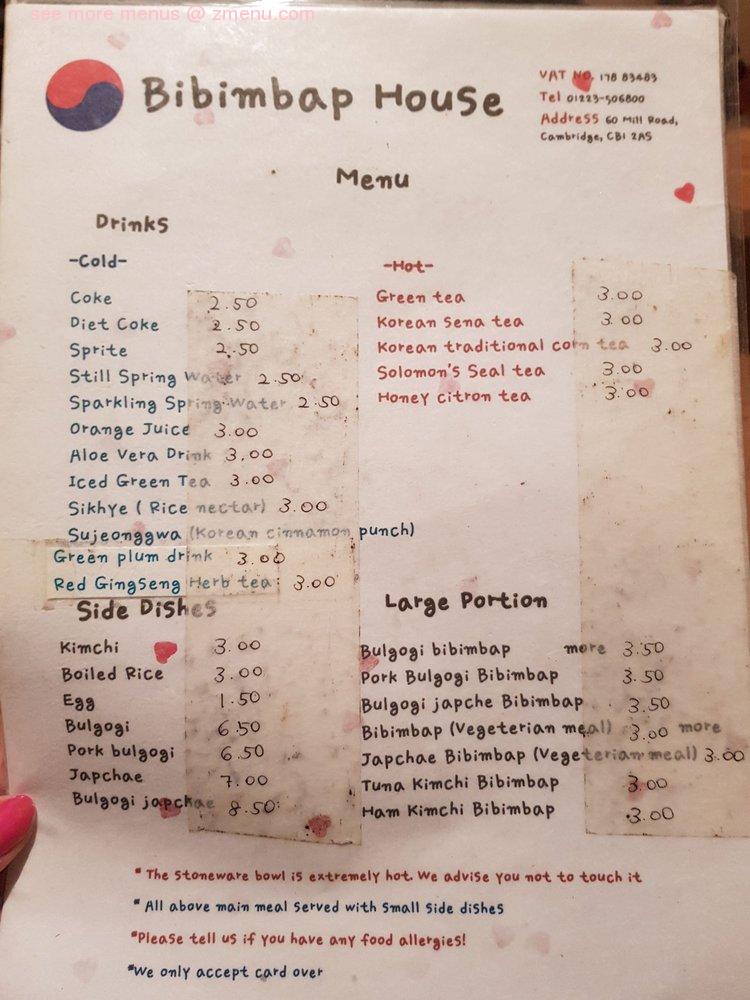 see more menus @ zmenu.com
Bibimbap House
VAT No. 178 83483
Tel 01223-506800
Address 60 Mill Road,
Cambridge, CB1 2AS
Menu
Drinks
-Cold-
Coke 2.50
Diet Coke 2.50
Sprite 2.50
Still Spring Water 2.50
Sparkling Spring Water 2.50
Orange Juice 3.00
Aloe Vera Drink 3.00
Iced Green Tea 3.00
Sikhye ( Rice nectar) 3.00
Sujeonggwa (Korean cinnamon punch)
Green plum drink 3.00
Red GingSeng Herb tea 3.00
-Hot-
Green tea 3.00
Korean Sena tea 3.00
Korean traditional corn tea 3.00
Solomon's Seal tea 3.00
Honey citron tea 3.00
Side Dishes
Kimchi 3.00
Boiled Rice 3.00
Egg 1.50
Bulgogi 6.50
Pork bulgogi 6.50
Japchae 7.00
Bulgogi japchae 8.50
Large Portion
Bulgogi bibimbap more 3.50
Pork Bulgogi Bibimbap 3.50
Bulgogi japche Bibimbap 3.50
Bibimbap (Vegeterian meal) 3.00 more
Japchae Bibimbap (Vegeterian meal) 3.00
Tuna Kimchi Bibimbap 3.00
Ham Kimchi Bibimbap 3.00
* The stoneware bowl is extremely hot. We advise you not to touch it
* All above main meal served with small side dishes
*Please tell us if you have any food allergies!
*We only accept card over